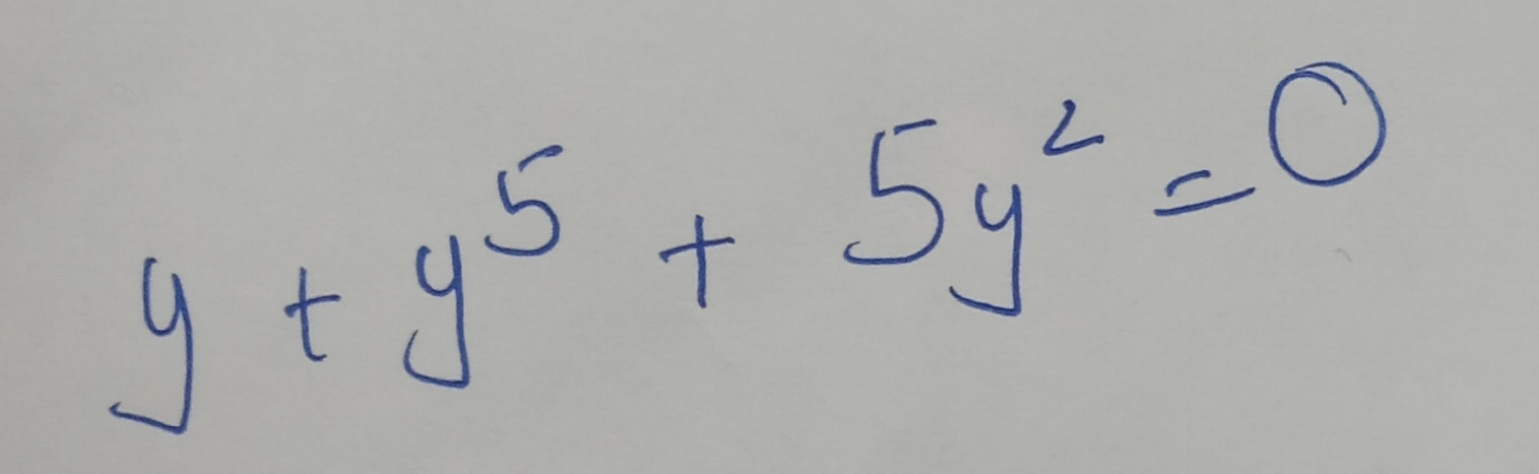 y + y⁵ + 5y² = 0